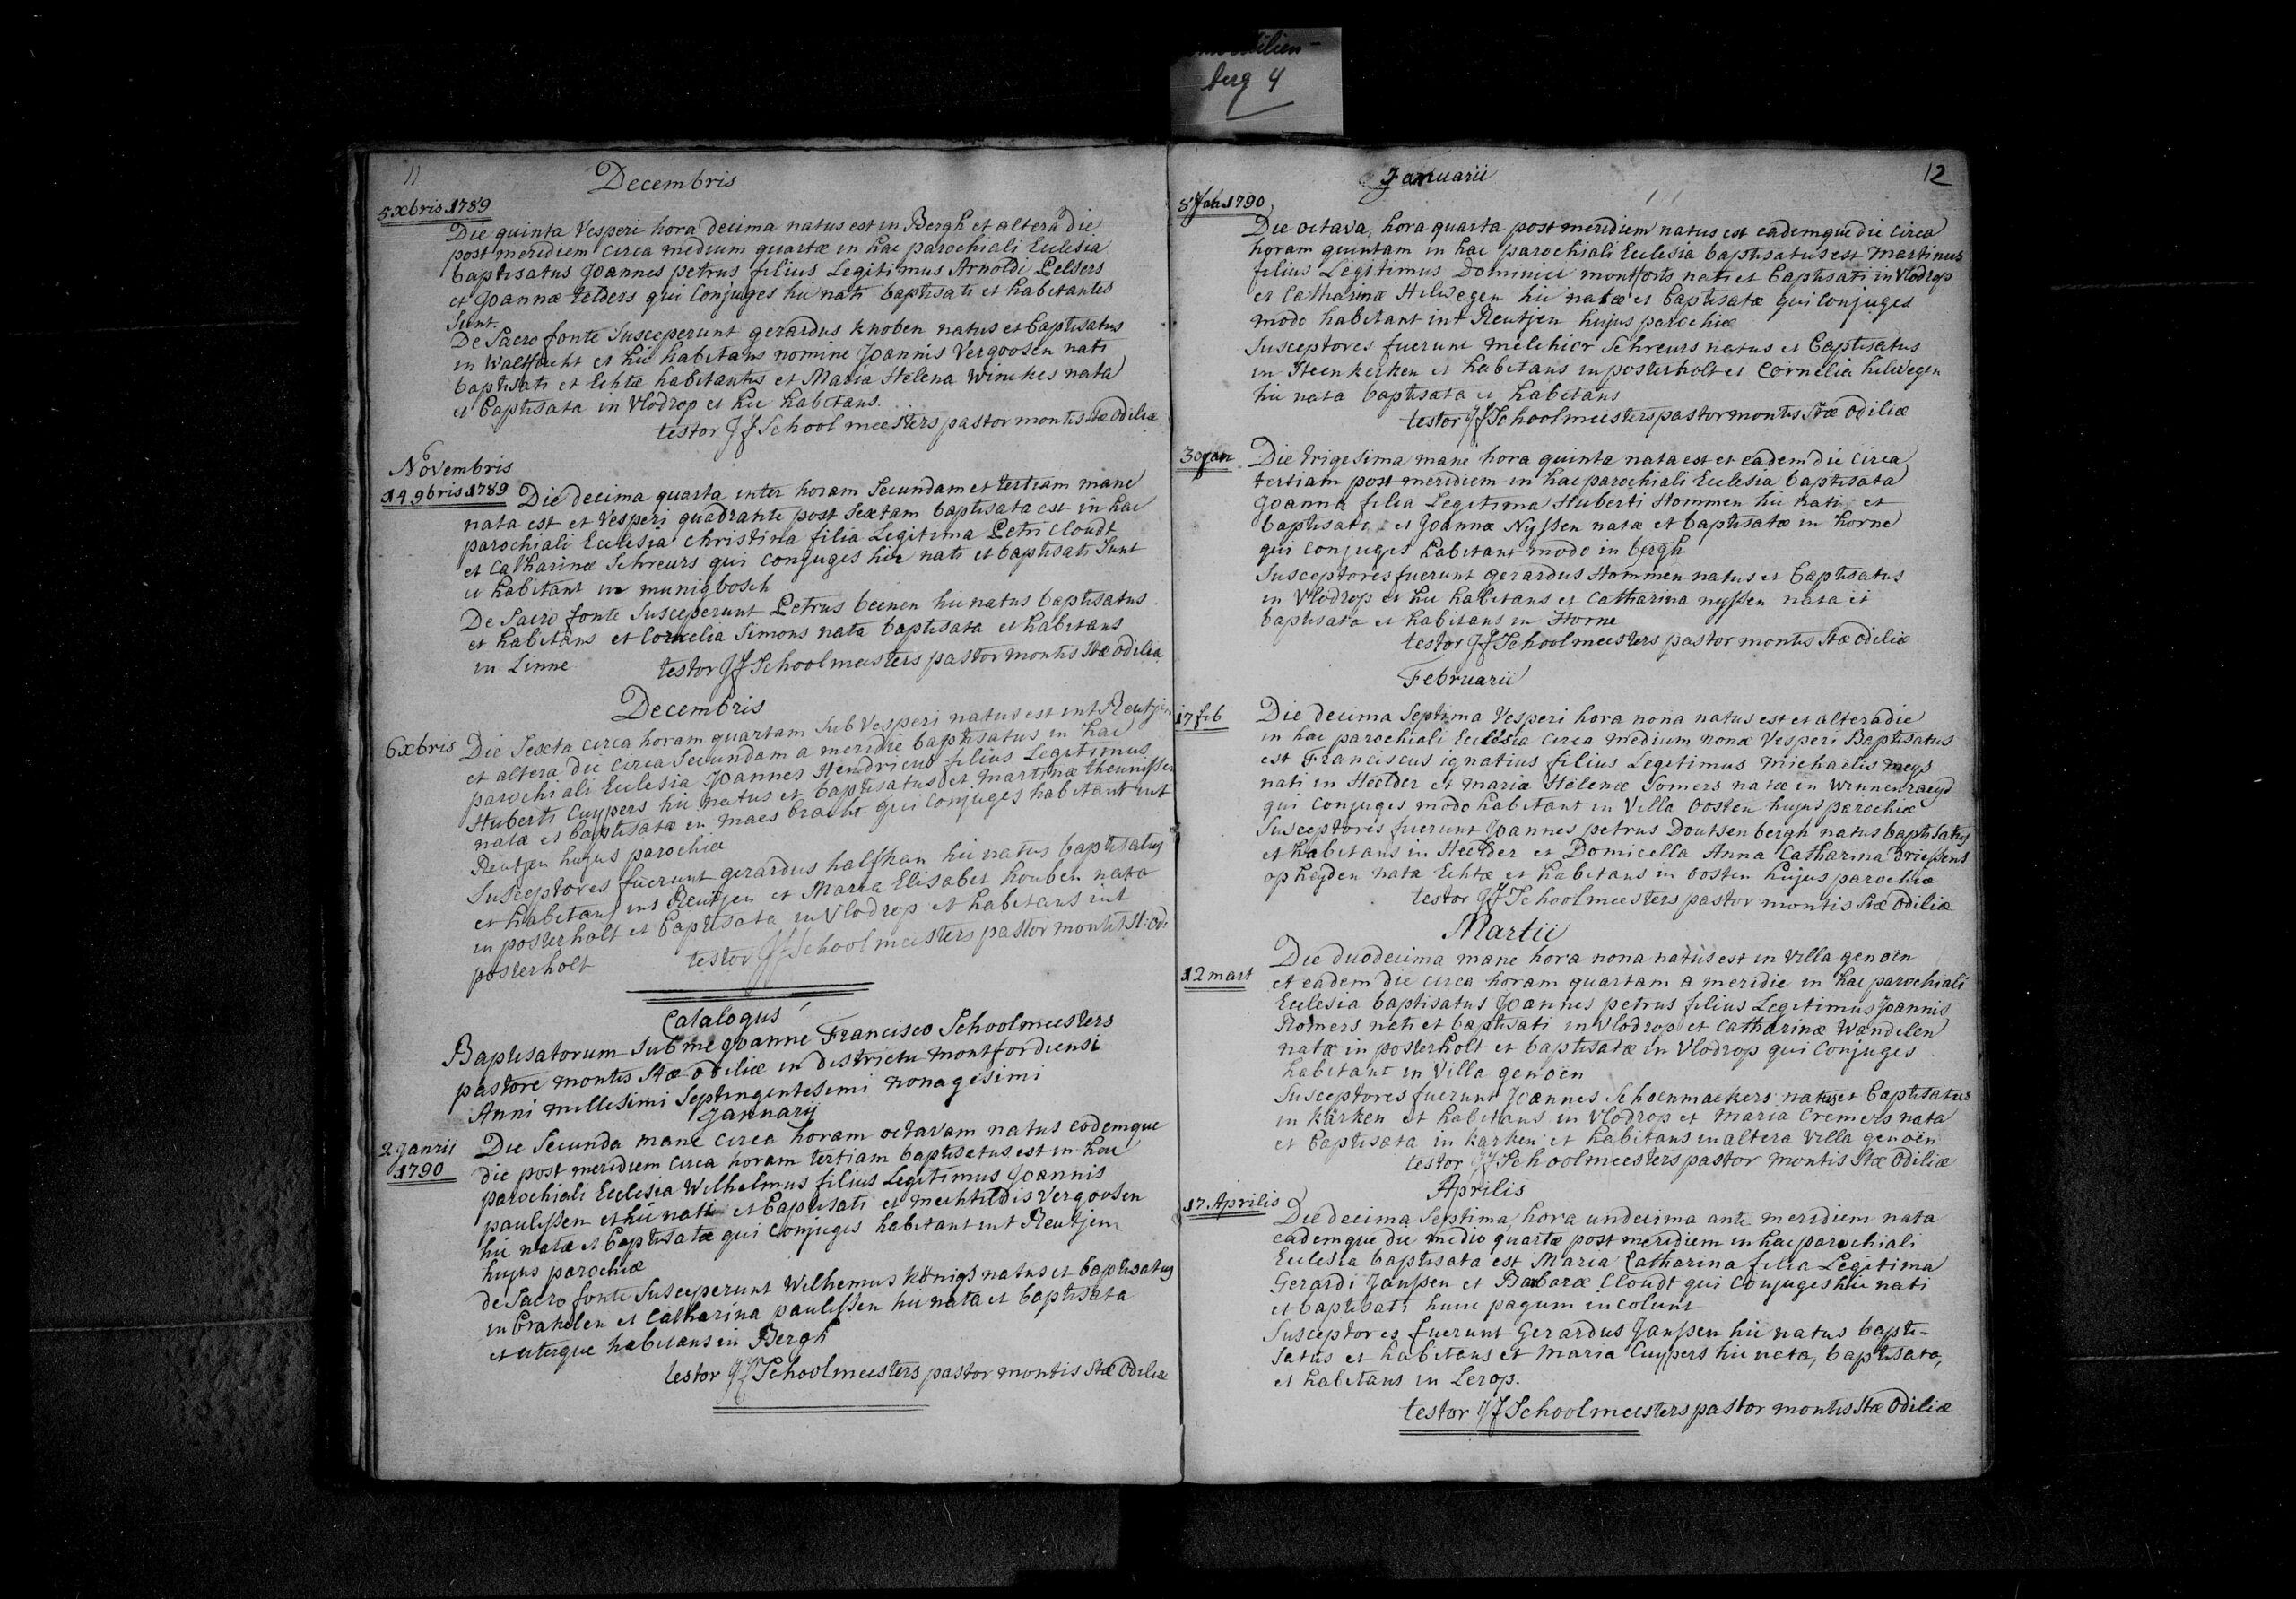 berg 4
11
Decembris
5 xbris 1789
Die quinta Vesperi hora decima natus est in Bergh et altera die
post meridiem circa medium quartæ in hac parochiali Ecclesia
baptisatus Joannes petrus filius Legitimus Arnoldi Pelsers
et Joannæ telders qui Conjuges hic nati baptisati et habitantes
Sunt.
De Sacro fonte Susceperunt gerardus knoben natus et baptisatus
in et hic habitans nomine Joannis Vergoosen nati
baptisati et Echtæ habitantis et Maria Helena Winckes nata
et baptisata in Vlodrop et hic habitans.
testor JfSchoolmeesters pastor montis Stæ Odiliæ
Novembris
14 9bris 1789 Die decima quarta inter horam Secundam et tertiam mane
nata est et Vesperi quadrante post Sextam baptisata est in hac
parochiali Ecclesia Christina filia Legitima Petri Cloudt
et Catharinæ Schreurs qui Conjuges hic nati et baptisati Sunt
et habitant in munigbosch
De Sacro fonte Susceperunt Petrus beenen hic natus baptisatus
et habitans et Cornelia Simons nata baptisata et habitans
in Linne testor JfSchoolmeesters pastor montis Stæ Odiliæ
Decembris
6 xbris Die Sexta circa horam quartam Sub Vesperi natus est int Reutjen
et altera die circa Secundam a meridie baptisatus in hac
parochiali Ecclesia Joannes Hendricus filius Legitimus
Huberti Cuypers hic natus et baptisatus et martinæ theunissen
natæ et baptisatæ in maes bracht qui Conjuges habitant int
Reutjen hujus parochiæ
Susceptores fuerunt gerardus halfkan hic natus baptisatus
et habitans int Reutjen et Maria Elisabet houben nata
in posterholt et baptisata in Vlodrop et habitans int
posterholt testor JfSchoolmeesters pastor montis St: Od:
Catalogus
Baptisatorum Sub me Joanne Francisco Schoolmeesters
pastore montis Stæ Odiliæ in districtu montfordiensi
Anni millesimi Septingentesimi nonagesimi
Januarij
2 Janrii
1790
Die Secunda mane circa horam octavam natus eodemque
die post meridiem circa horam tertiam baptisatus est in hac
parochiali Ecclesia Wilhelmus filius Legitimus Joannis
paulissen et hic nati et baptisati et mechtildis Vergoosen
hic natæ et baptisatæ qui Conjuges habitant int Reutjen
hujus parochiæ
de Sacro fonte Susceperunt Wilhemus Königs natus et baptisatus
in brakelen et Catharina paulissen hic nata et baptisata
et uterque habitans in Bergh
testor JfSchoolmeesters pastor montis Stæ Odiliæ
Januarii
12
8 Jan 1790
Die octava, hora quarta post meridiem natus est eademque die circa
horam quintam in hac parochiali Ecclesia baptisatus est Martinus
filius Legitimus Dominici montforts nati et baptisati in Vlodrop
et Catharinæ Helwegen hic natæ et baptisatæ qui Conjuges
modo habitant int Reutjen hujus parochiæ
Susceptores fuerunt melchior Schreurs natus et baptisatus
in Steenkerken et habitans in posterholt et Cornelia helwegen
hic nata baptisata et habitans
testor JfSchoolmeesters pastor montis Stæ Odiliæ
30 Jan
Die trigesima mane hora quinta nata est et eadem die circa
tertiam post meridiem in hac parochiali Ecclesia baptisata
Joanna filia Legitima Huberti Hommen hic nati et
baptisati et Joannæ Nyssen natæ et baptisatæ in horne
qui Conjuges habitant modo in bergh
Susceptores fuerunt gerardus Hommen natus et baptisatus
in Vlodrop et hic habitans et Catharina nyssen nata et
baptisata et habitans in Horne
testor JfSchoolmeesters pastor montis Stæ Odiliæ
Februarii
17 feb
Die decima Septima Vesperi hora nona natus est et altera die
in hac parochiali Ecclesia circa medium nonæ Vesperi Baptisatus
est Franciscus ignatius filius Legitimus Michaelis meys
nati in Heelder et mariæ Helenæ Somers natæ in Winnenraeyd
qui Conjuges modo habitant in Villa Oosten hujus parochiæ
Susceptores fuerunt Joannes petrus Doutsenbergh natus baptisatus
et habitans in Heelder et Domicella Anna Catharina Driessens
op heyden nata Echtæ et habitans in Oosten hujus parochiæ
testor JfSchoolmeesters pastor montis Stæ Odiliæ
Martii
12 mart
Die duodecima mane hora nona natus est in Villa genoen
et eadem die circa horam quartam a meridie in hac parochiali
Ecclesia baptisatus Joannes petrus filius Legitimus Joannis
Romers nati et baptisati in Vlodrop et Catharinæ Wandelen
natæ in posterholt et baptisatæ in Vlodrop qui Conjuges
habitant in Villa genoen
Susceptores fuerunt Joannes Schoenmaekers natus et baptisatus
in Karken et habitans in Vlodrop et Maria Cremers nata
et baptisata in karken et habitans in altera Villa genoen
testor JfSchoolmeesters pastor montis Stæ Odiliæ
Aprilis
17. Aprilis
Die decima Septima, hora undecima ante meridiem nata
eademque die medio quartæ post meridiem in hac parochiali
Ecclesia baptisata est Maria Catharina filia Legitima
Gerardi Janssen et Barbaræ Cloudt qui Conjuges hic nati
et baptisati hunc pagum incolunt
Susceptores fuerunt Gerardus Janssen hic natus bapti-
satus et habitans et Maria Cuypers hic nata, baptisata,
et habitans in Lerop.
testor JfSchoolmeesters pastor montis Stæ Odiliæ